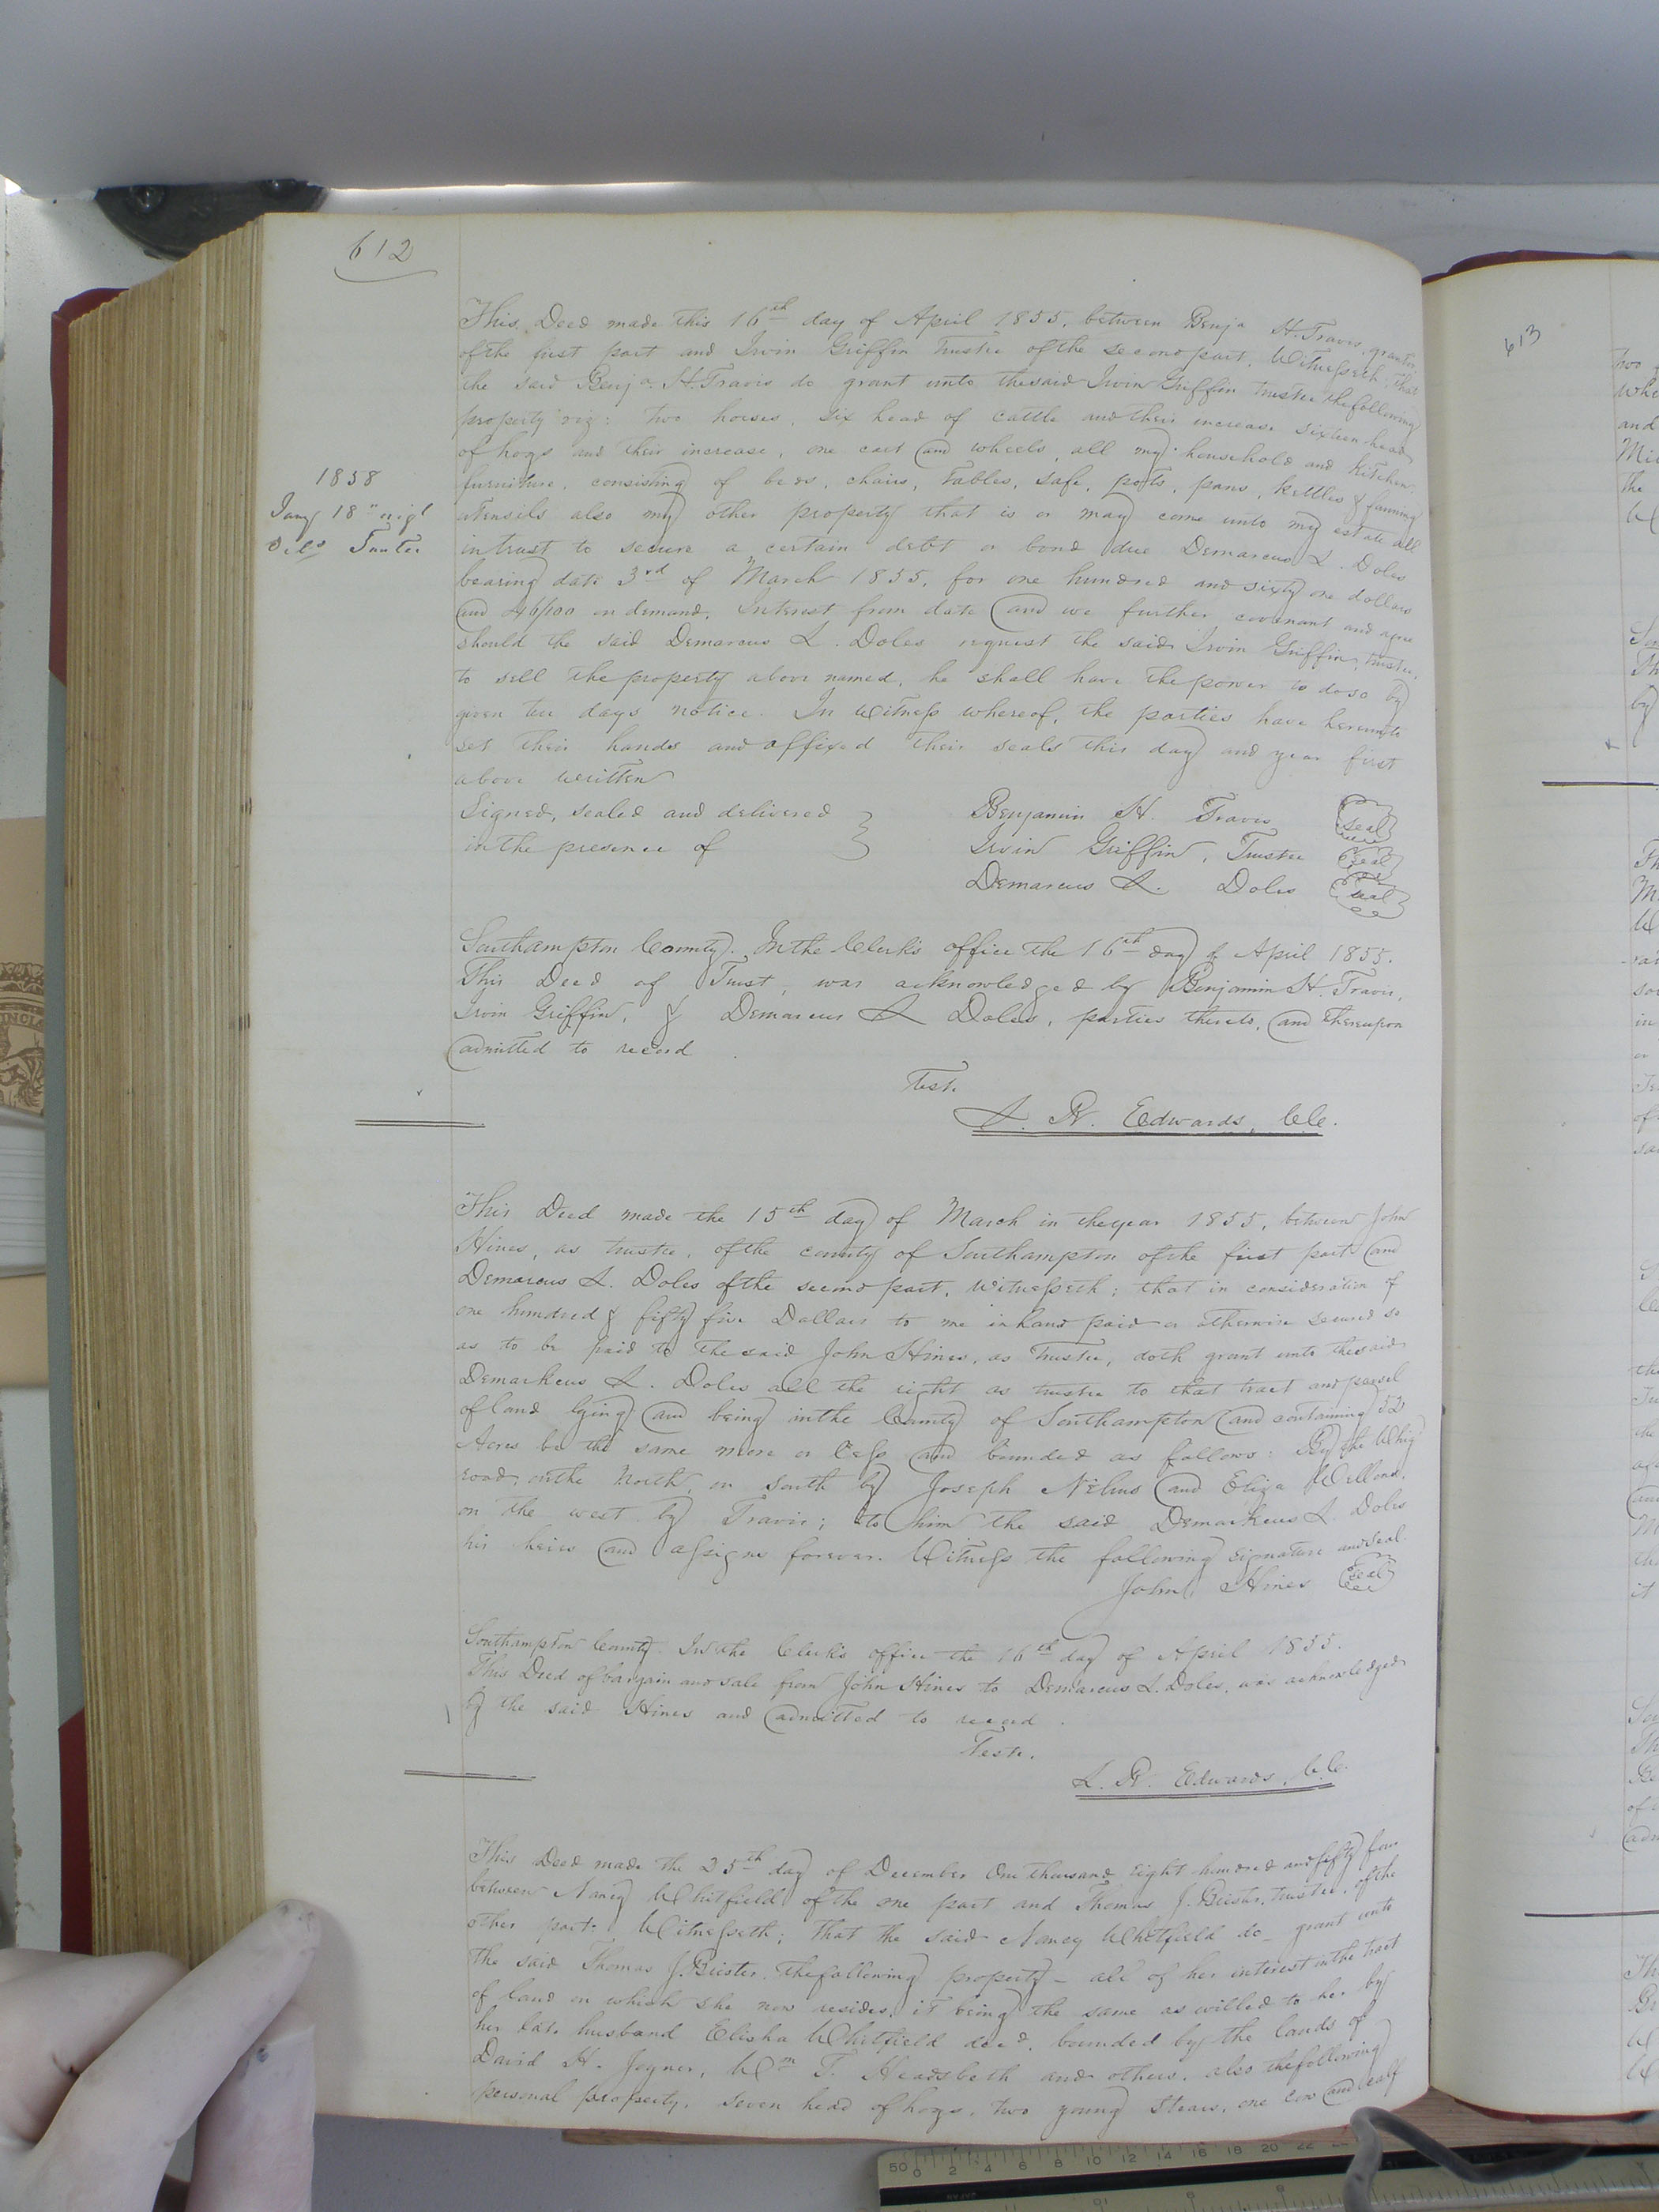 612
This Deed made this 16th day of April 1855, between Benja H. Travis, grantor
of the first part and Irvin Griffin Trustee of the second part, Witnesseth, that
the said Benja. H. Travis do grant unto the said Irvin Griffin trustee the following
property viz: two horses, six head of cattle and their increase sixteen head
of hogs and their increase, one cart and wheels, all my household and kitchen
furniture, consisting of beds, chairs, tables, safe, pots, pans, kettles & farming
utensils also my other property that is or may come unto my estate all
in trust to secure a certain debt or bond due Demarcus L. Doles
bearing date 3rd of March 1855, for one hundred and sixty one dollars
and 46/100 on demand. Interest from date and we further covenant and agree
should the said Demarcus L. Doles request the said Irvin Griffin, trustee,
to sell the property above named, he shall have the power to do so by
given ten days notice. In Witness whereof, the parties have hereunto
set their hands and affixed their seals this day and year first
above written
1858
Jany 18"
Signed, sealed and delivered }
in the presence of
Benjamin H. Travis Seal
Irvin Griffin, Trustee Seal
Demarcus L. Doles Seal
Southampton County. In the Clerk's office the 16th day of April 1855.
This Deed of Trust, was acknowledged by Benjamin H. Travis,
Irvin Griffin, & Demarcus L Doles, parties thereto, and thereupon
admitted to record.
Test.
L. R. Edwards, C.C.
This Deed made the 15th day of March in the year 1855, between John
Hines, as trustee, of the county of Southampton of the first part and
Demarcus L. Doles of the second part, Witnesseth; that in consideration of
one hundred & fifty five Dollars to me in hand paid or otherwise secured so
as to be paid to the said John Hines, as Trustee, doth grant unto the said
Demarkeus L. Doles all the right as trustee to that tract and parsel
of land lying and being in the County of Southampton and containing 52
Acres be the same more or less and bounded as follows: By the Whig
road, on the North, on south by Joseph and Eliza
on the west by Travis; to him the said Demarkeus L. Doles
his heirs and assigns forever. Witness the following signature and seal.
John Hines Seal
Southampton County. In the Clerk's office the 16th day of April 1855.
This Deed of bargain and sale from John Hines to Demarcus L. Doles, was acknowledged
by the said Hines and admitted to record.
Teste.
L. R. Edwards, C.C.
This Deed made the 25th day of December One thousand eight hundred and fifty four
between Nancy Whitfield of the one part and Thomas J. trustee, of the
other part. Witnesseth; that the said Nancy Whitfield do grant unto
the said Thomas J. the following property - all of her interest in the tract
of land on which she now resides, it being the same as willed to her by
her late husband Elisha Whitfield decd. bounded by the lands of
David H. Joyner, Wm T. and others, also the following
personal property, seven head of hogs, two young Stears, one cow and calf
613